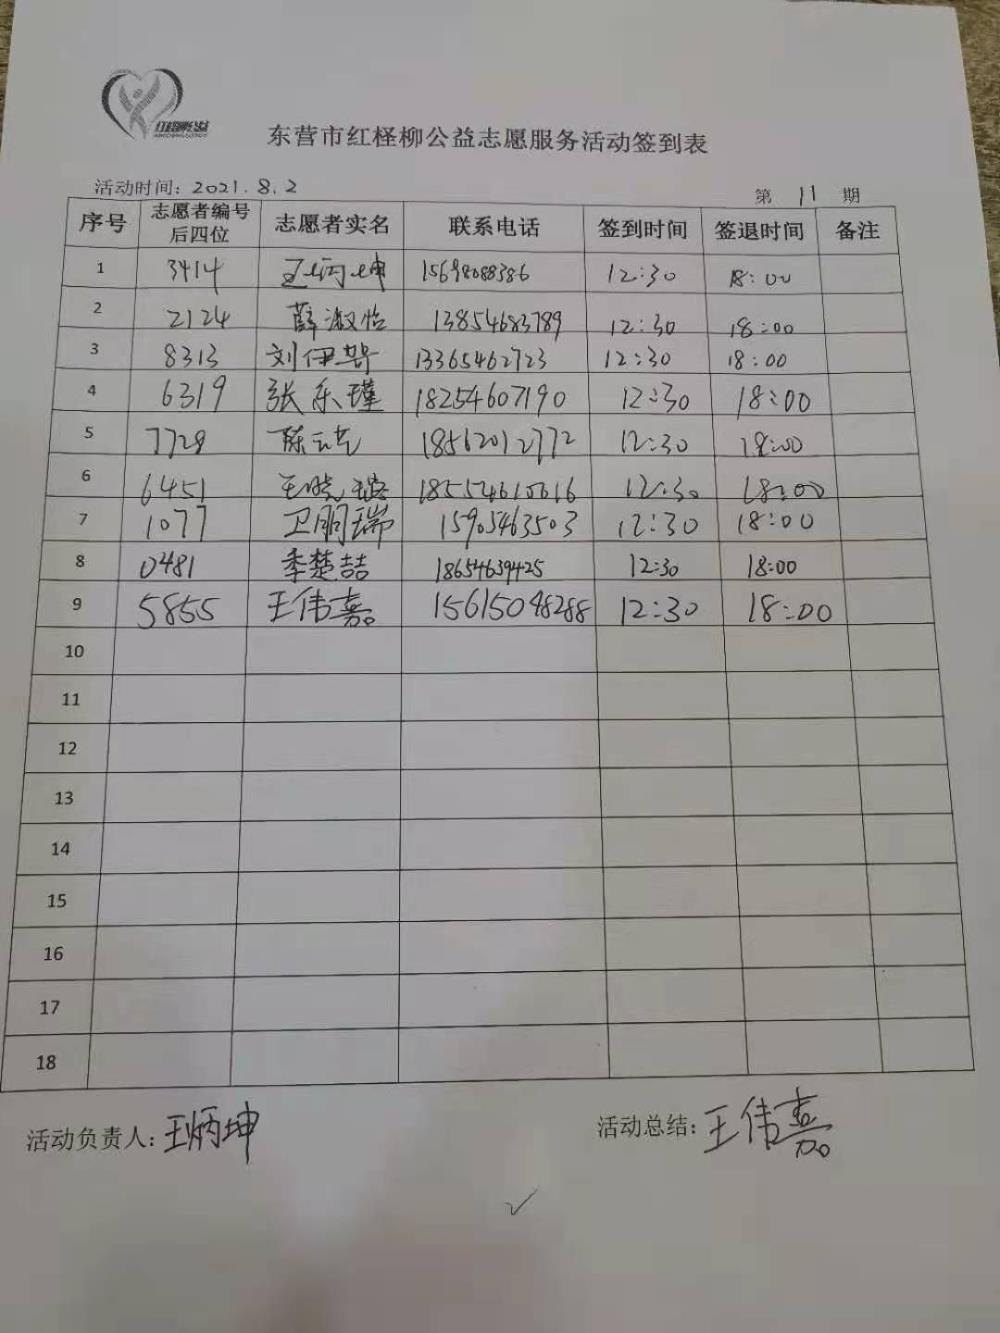 红柽柳公益
东营市红柽柳公益志愿服务活动签到表
活动时间: 2021.8.2 第 11 期
序号 志愿者编号后四位 志愿者实名 联系电话 签到时间 签退时间 备注
1 3414 王炳坤 15698088386 12:30 18:00
2 2124 薛淑怡 13854683789 12:30 18:00
3 8313 刘伊 13365462723 12:30 18:00
4 6319 张乐瑾 18254607190 12:30 18:00
5 7728 陈 18562012772 12:30 18:00
6 6451 王晓璐 18554610616 12:30 18:00
7 1077 卫朋瑞 15905463503 12:30 18:00
8 0481 季楚喆 18654639425 12:30 18:00
9 5855 王伟嘉 15615048288 12:30 18:00
10
11
12
13
14
15
16
17
18
活动负责人: 王炳坤 活动总结: 王伟嘉